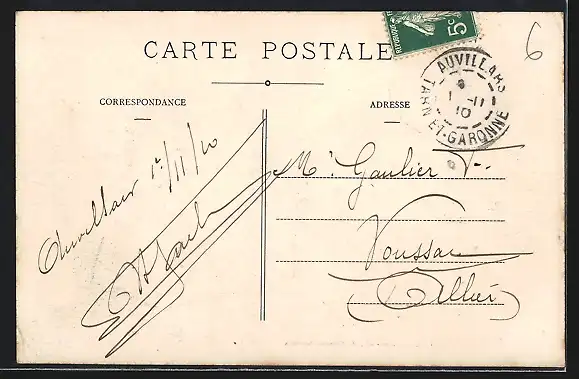 6
RÉPUBLIQUE
5c
CARTE POSTALE
AUVILLARS
1 -11
10
TARN-ET-GARONNE
CORRESPONDANCE
ADRESSE
Auvillar 1er/11/10
Mr Gaulier
Voussac
(Allier)